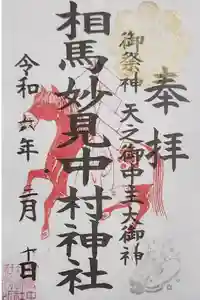 奉拝
御祭神 天之御中主大御神
相馬妙見中村神社
令和六年 二月 十日